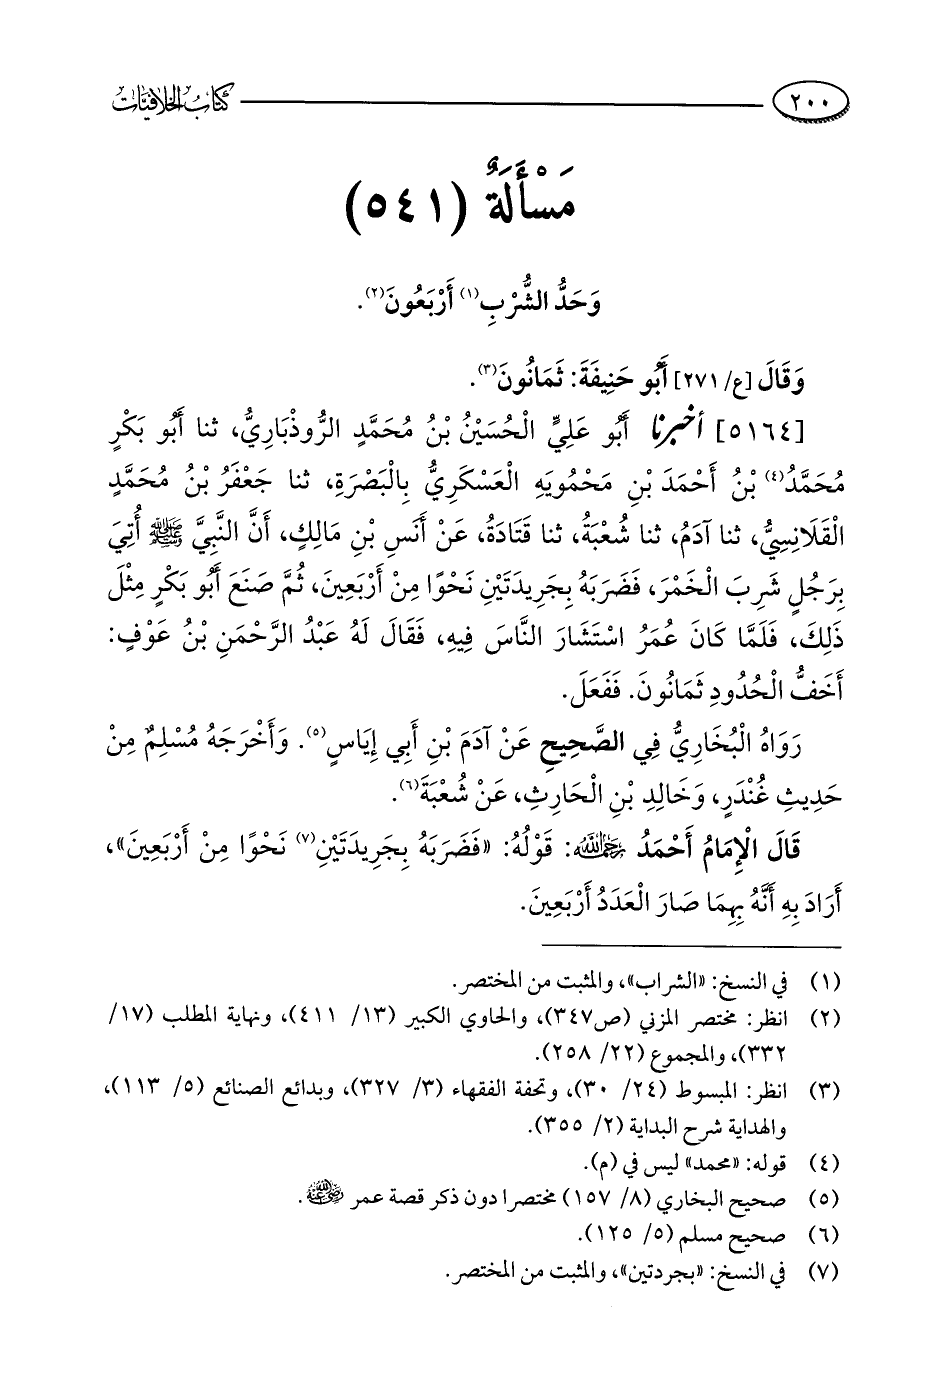 ٢٠٠ كتاب الخلافيات
مَسْأَلَةٌ (٥٤١)
وَحَدُّ الشُّرْبِ(١) أَرْبَعُونَ(٢).
وَقَالَ [ع/ ٢٧١] أَبُو حَنِيفَةَ: ثَمَانُونَ(٣).
[٥١٦٤] أخبرنا أَبُو عَلِيٍّ الْحُسَيْنُ بْنُ مُحَمَّدٍ الرُّوذْبَارِيُّ، ثنا أَبُو بَكْرٍ
مُحَمَّدُ(٤) بْنُ أَحْمَدَ بْنِ مَحْمُويَهِ الْعَسْكَرِيُّ بِالْبَصْرَةِ، ثنا جَعْفَرُ بْنُ مُحَمَّدٍ
الْقَلَانِسِيُّ، ثنا آدَمُ، ثنا شُعْبَةُ، ثنا قَتَادَةُ، عَنْ أَنَسِ بْنِ مَالِكٍ، أَنَّ النَّبِيَّ ﷺ أُتِيَ
بِرَجُلٍ شَرِبَ الْخَمْرَ، فَضَرَبَهُ بِجَرِيدَتَيْنِ نَحْوًا مِنْ أَرْبَعِينَ، ثُمَّ صَنَعَ أَبُو بَكْرٍ مِثْلَ
ذَلِكَ، فَلَمَّا كَانَ عُمَرُ اسْتَشَارَ النَّاسَ فِيهِ، فَقَالَ لَهُ عَبْدُ الرَّحْمَنِ بْنُ عَوْفٍ:
أَخَفُّ الْحُدُودِ ثَمَانُونَ. فَفَعَلَ.
رَوَاهُ الْبُخَارِيُّ فِي الصَّحِيحِ عَنْ آدَمَ بْنِ أَبِي إِيَاسٍ(٥). وَأَخْرَجَهُ مُسْلِمٌ مِنْ
حَدِيثِ غُنْدَرٍ، وَخَالِدِ بْنِ الْحَارِثِ، عَنْ شُعْبَةَ(٦).
قَالَ الْإِمَامُ أَحْمَدُ رَحِمَهُ اللهُ: قَوْلُهُ: «فَضَرَبَهُ بِجَرِيدَتَيْنِ(٧) نَحْوًا مِنْ أَرْبَعِينَ»،
أَرَادَ بِهِ أَنَّهُ بِهِمَا صَارَ الْعَدَدُ أَرْبَعِينَ.
(١) في النسخ: «الشراب»، والمثبت من المختصر.
(٢) انظر: مختصر المزني (ص٣٤٧)، والحاوي الكبير (١٣/ ٤١١)، ونهاية المطلب (١٧/
٣٣٢)، والمجموع (٢٢/ ٢٥٨).
(٣) انظر: المبسوط (٢٤/ ٣٠)، وتحفة الفقهاء (٣/ ٣٢٧)، وبدائع الصنائع (٥/ ١١٣)،
والهداية شرح البداية (٢/ ٣٥٥).
(٤) قوله: «محمد» ليس في (م).
(٥) صحيح البخاري (٨/ ١٥٧) مختصرا دون ذكر قصة عمر رضي الله عنه.
(٦) صحيح مسلم (٥/ ١٢٥).
(٧) في النسخ: «بجردتين»، والمثبت من المختصر.